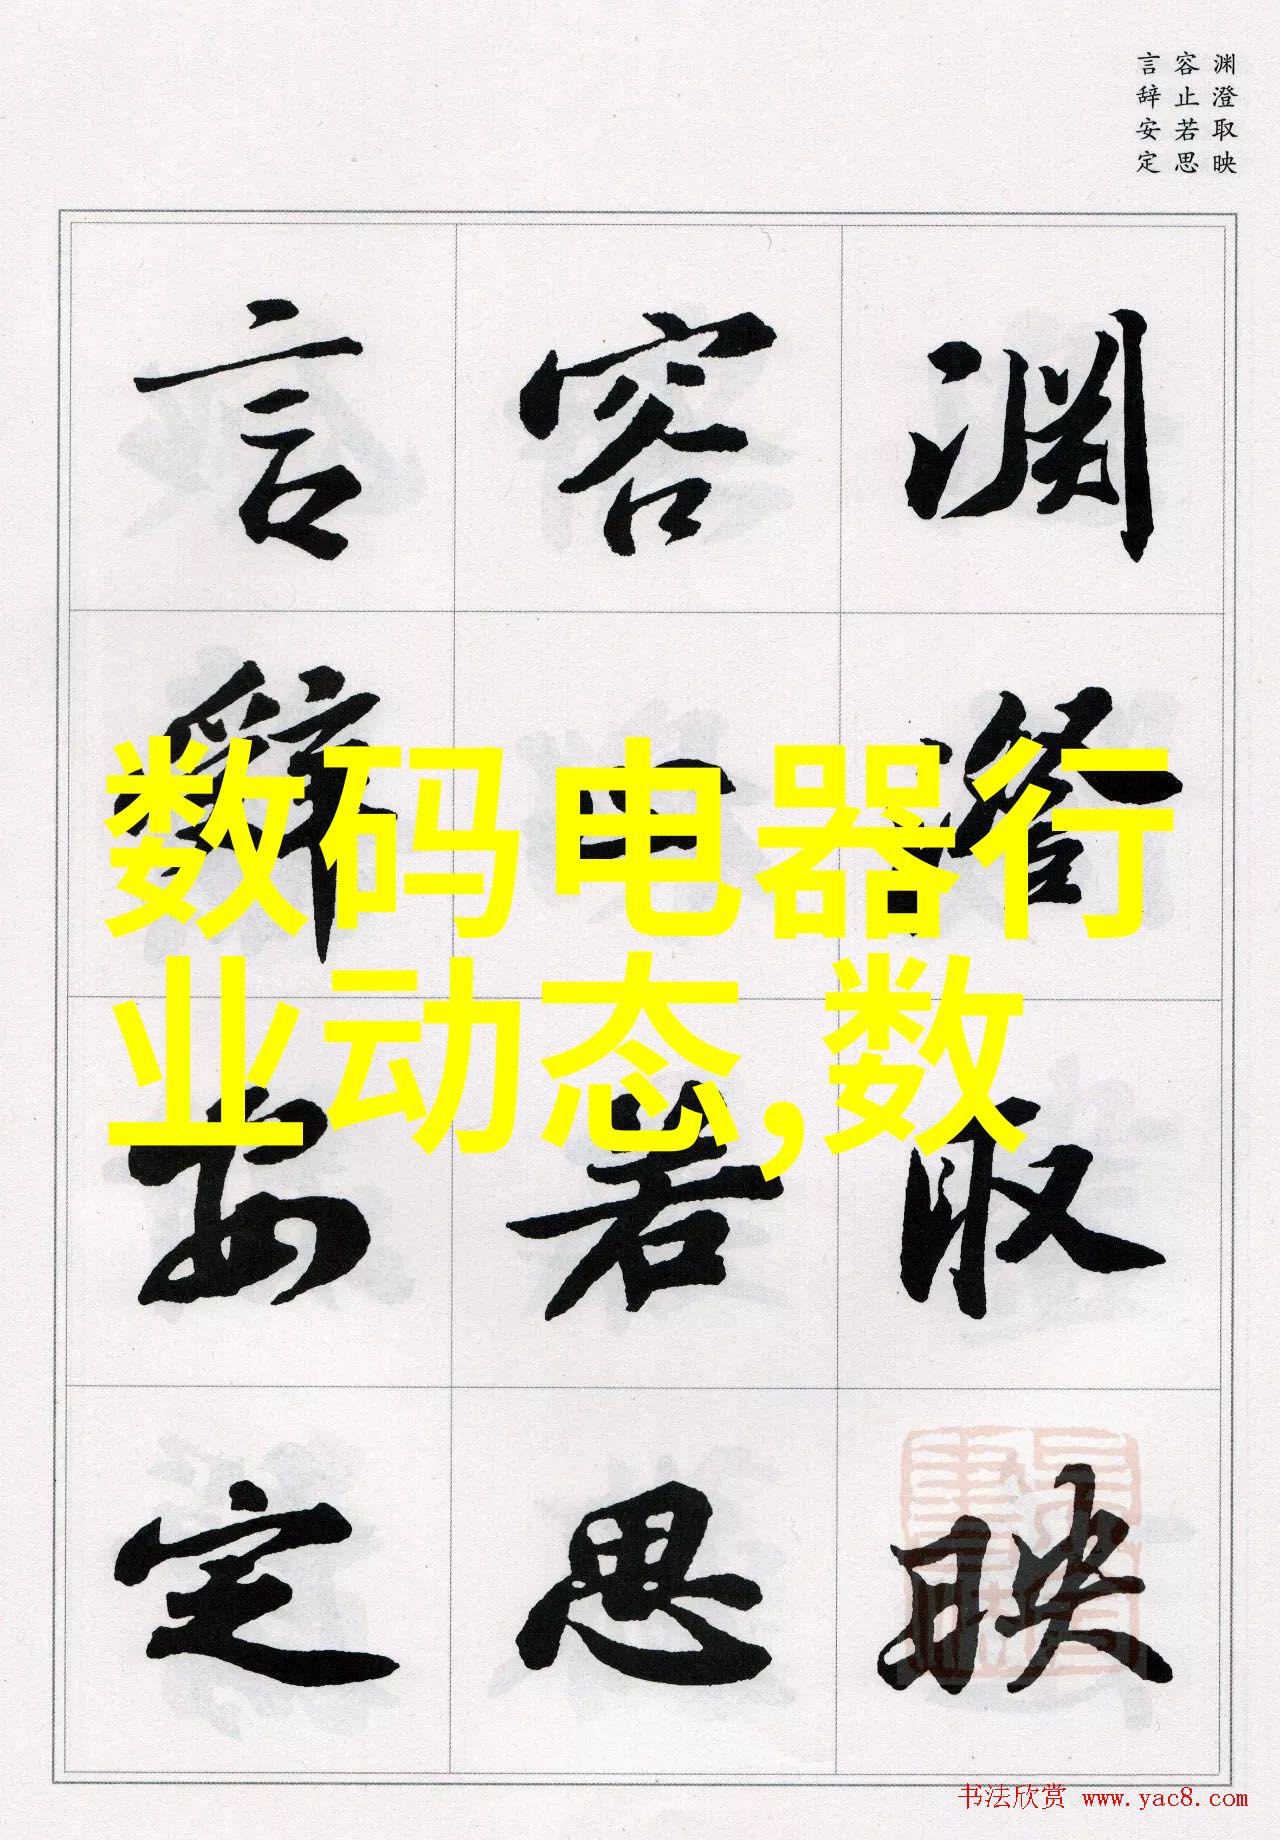 渊澄取映
容止若思
言辞安定
渊澄取映
容止若思
言辞安定
数码电器行
业动态,数
书法欣赏 www.yac8.com